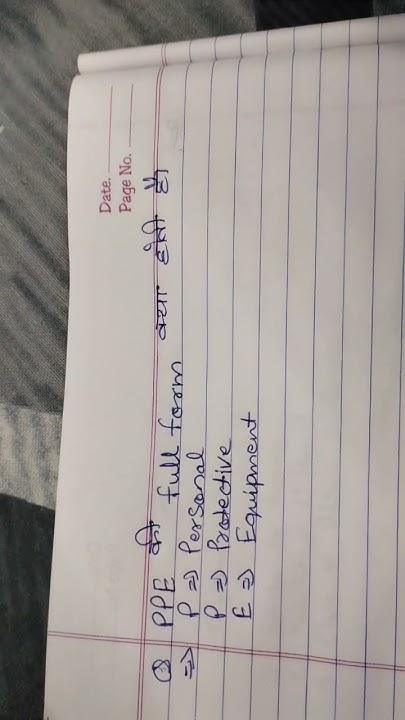 Date.
Page No.
Q PPE की full form क्या होती है
⇒ P ⇒ Personal
P ⇒ Protective
E ⇒ Equipment